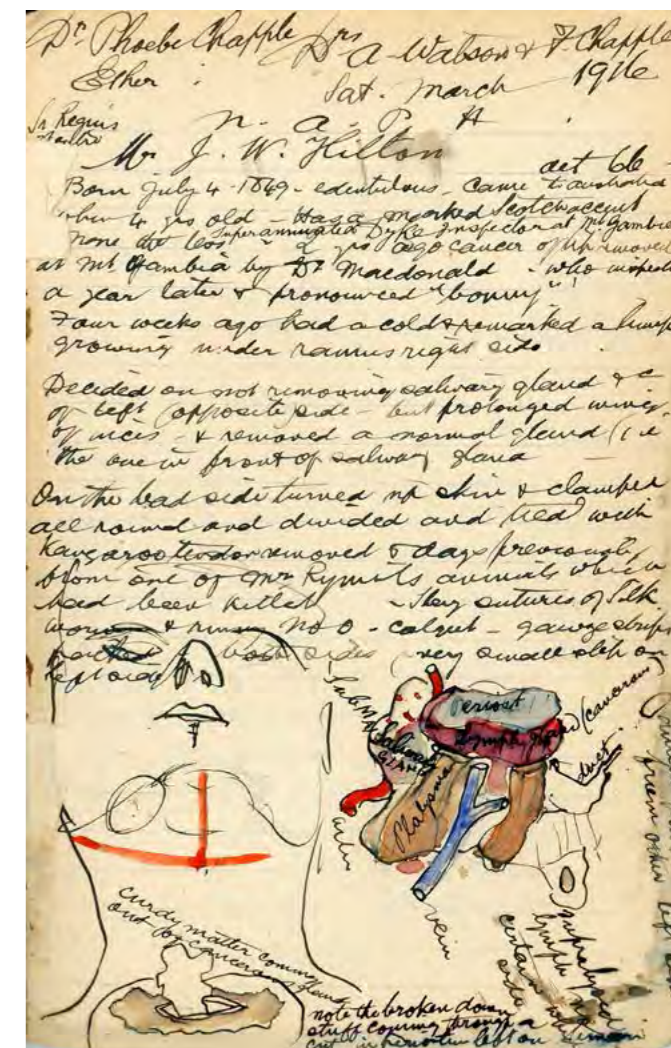 Dr Phoebe Chapple Drs A. Watson & F. Chapple
Ether : Sat. March 1916
Sr. Requis N. A. P. H.
Mr J. W. Hilton aet 66
Born July 4 - 1849 - edentulous - came to Australia
when 4 yrs old - Has a marked Scotch accent
none the less - Superannuated Dyke Inspector at Mt. Gambier
2 yrs ago cancer of lip removed
at Mt Gambia by Dr Macdonald - who
a year later & pronounced "bonny"
Four weeks ago had a cold & remarked a lump
growing under ramus right side
Decided on not removing salivary gland & c
of left (opposite) side - but prolonged
of incis - & removed a normal gland (i.e
the one in front of salivary gland
On the bad side turned up skin & clamped
all round and divided and tied with
Kangaroo tendon removed 5 days previously
from one of Mr animals which
had been killed - Skin sutures of Silk
worm & No 0 - catgut - gauze strips
both sides very small slip on
left side
Periost
SubM Salivary
GLAND
Lymph gland (cancerous)
Platysma
duct
vein
curdy matter coming
out of cancerous gland
note the broken down
stuff coming through a
cut in